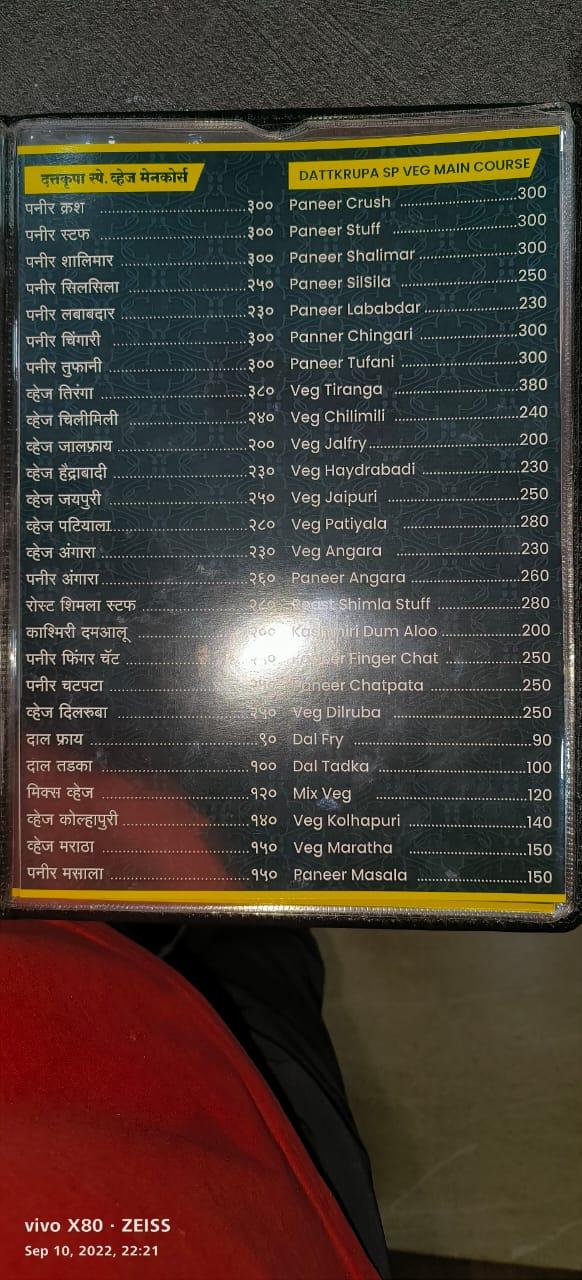 दत्तकृपा स्पे. व्हेज मेनकोर्स DATTKRUPA SP VEG MAIN COURSE
पनीर क्रश ३०० Paneer Crush 300
पनीर स्टफ ३०० Paneer Stuff 300
पनीर शालिमार ३०० Paneer Shalimar 300
पनीर सिलसिला २५० Paneer SilSila 250
पनीर लबाबदार २३० Paneer Lababdar 230
पनीर चिंगारी ३०० Panner Chingari 300
पनीर तुफानी ३०० Paneer Tufani 300
व्हेज तिरंगा ३८० Veg Tiranga 380
व्हेज चिलीमिली २४० Veg Chilimili 240
व्हेज जालफ्राय २०० Veg Jalfry 200
व्हेज हैद्राबादी २३० Veg Haydrabadi 230
व्हेज जयपुरी २५० Veg Jaipuri 250
व्हेज पटियाला २८० Veg Patiyala 280
व्हेज अंगारा २३० Veg Angara 230
पनीर अंगारा २६० Paneer Angara 260
रोस्ट शिमला स्टफ २८० Roast Shimla Stuff 280
काश्मिरी दमआलू २०० Kashmiri Dum Aloo 200
पनीर फिंगर चॅट Paneer Finger Chat 250
पनीर चटपटा २५० Paneer Chatpata 250
व्हेज दिलरुबा २५० Veg Dilruba 250
दाल फ्राय ९० Dal Fry 90
दाल तडका १०० Dal Tadka 100
मिक्स व्हेज १२० Mix Veg 120
व्हेज कोल्हापुरी १४० Veg Kolhapuri 140
व्हेज मराठा १५० Veg Maratha 150
पनीर मसाला १५० Paneer Masala 150
vivo X80 · ZEISS
Sep 10, 2022, 22:21